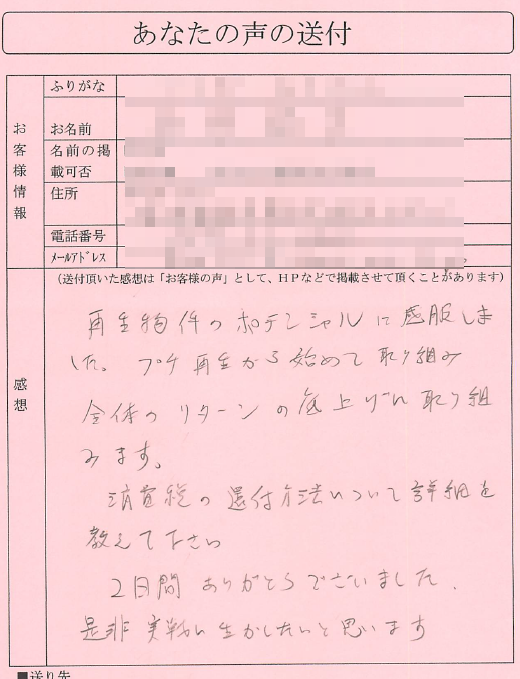 あなたの声の送付
お客様情報
ふりがな
お名前
名前の掲
載可否
住所
電話番号
メールアドレス
感想
(送付頂いた感想は「お客様の声」として、HPなどで掲載させて頂くことがあります)
再生物件のポテンシャルに感服しま
した。プチ再生から始めて取り組み
全体のリターンの底上げに取り組
みます。
消費税の還付方法について詳細を
教えて下さい
2日間ありがとうございました.
是非実戦に生かしたいと思います
■送り先